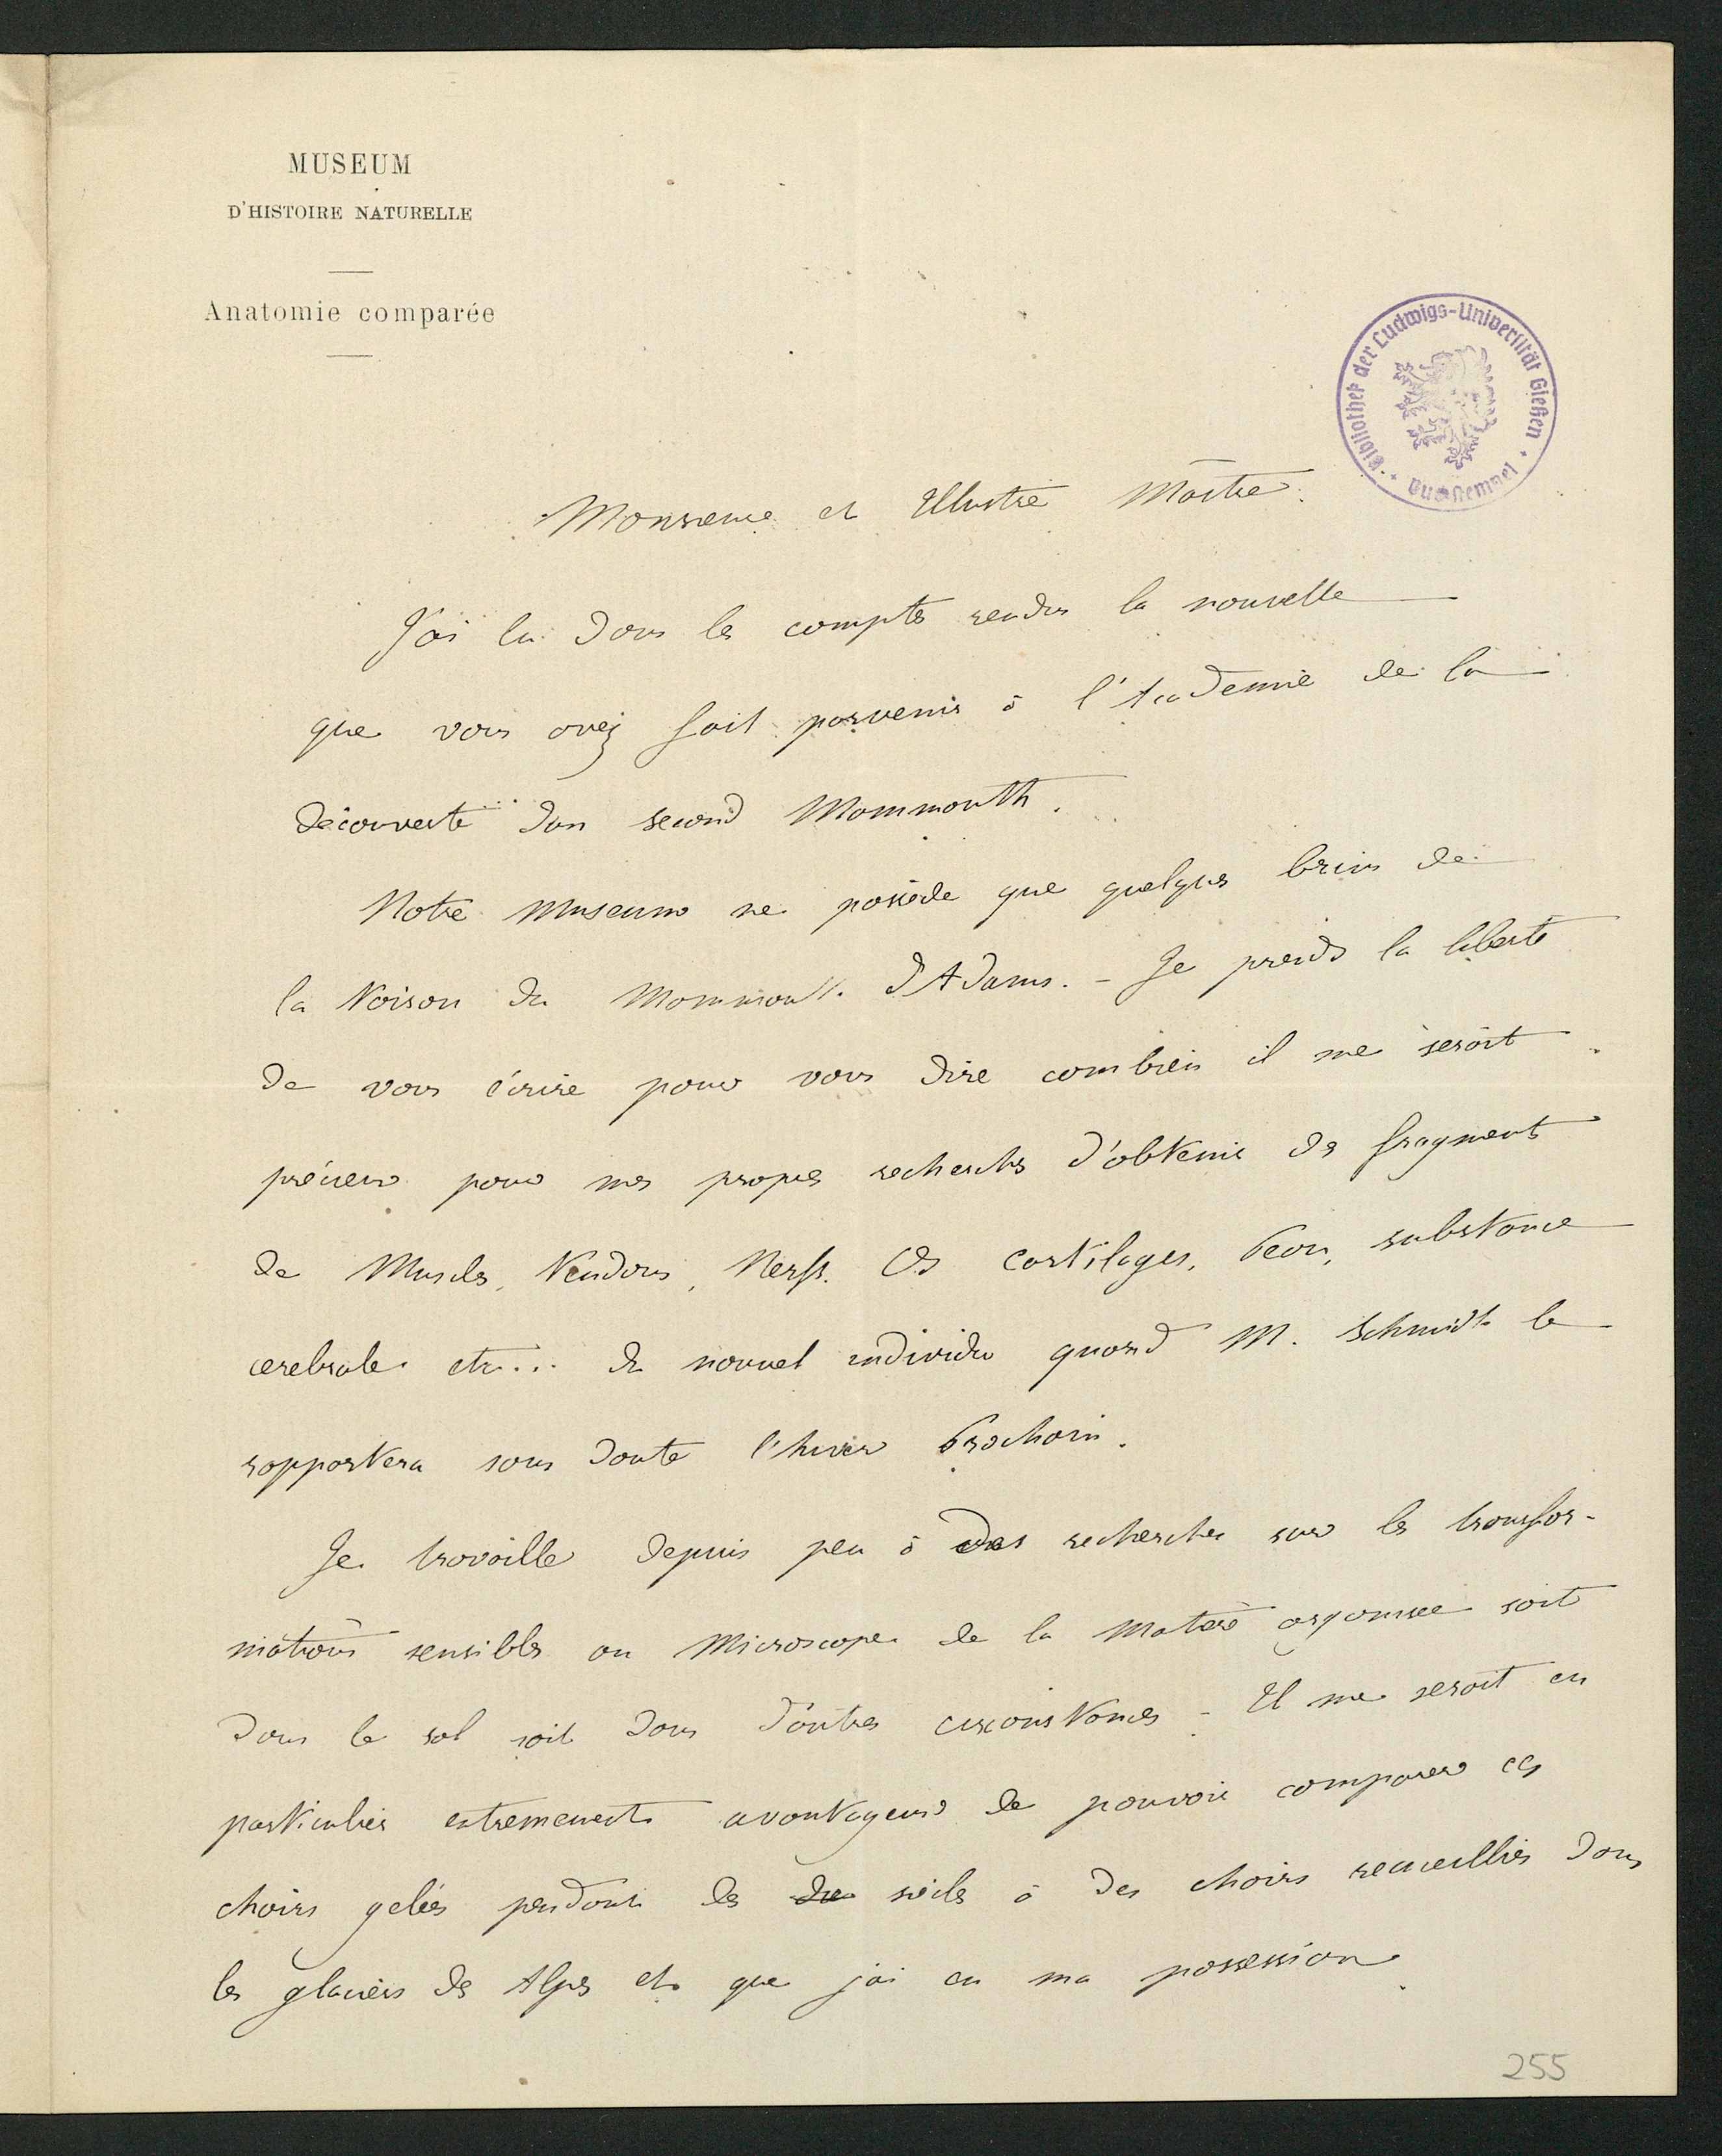 MUSEUM
D'HISTOIRE NATURELLE
Anatomie comparée
Bibliothek der Ludwigs-Universität Gießen
Monsieur et Illustre Maitre
J'ai lu dans les comptes rendus la nouvelle
que vous avez fait parvenir à l'Academie de la
découverte d'un second Mammouth.
Notre Museum ne possède que quelques brins de
la toison du Mammouth d'Adams. - Je prends la liberté
de vous écrire pour vous dire combien il me serait
précieux pour mes propres recherches d'obtenir des fragments
de Muscles, tendons, Nerfs. Os cartilages, Peau, substance
cerebrale etc... du nouvel individu quand M. Schmidt le
rapportera sans doute l'hiver Prochain.
Je travaille depuis peu à des recherches sur les transfor-
mations sensibles au Microscope de la Matière organisée soit
dans le sol soit dans d'autres circonstances - Il me serait en
particulier extremement avantageux de pouvoir comparer ces
chairs gelées pendant des siècles à des chairs recueillies dans
les glaciers des Alpes et que j'ai en ma possession.
255